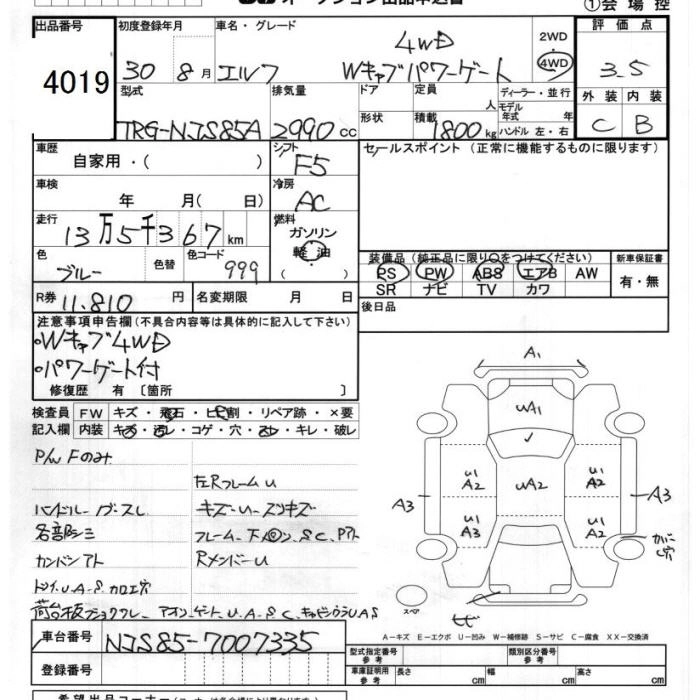 オークション出品申込書
①会場控
出品番号 4019
初度登録年月 30 8月
車名・グレード エルフ 4WD WキャブパワーゲートJ
2WD 4WD
評価点 3.5
外装 内装
C B
型式 TRG-NJS85A
排気量 2990cc
ドア
形状
定員 人
積載 1800kg
ディーラー・並行
モデル年式 年
ハンドル 左・右
車歴 自家用・( )
シフト F5
セールスポイント(正常に機能するものに限ります)
車検 年 月( 日)
冷房 AC
走行 13万5千367km
燃料 ガソリン 軽油 ( )
色 ブルー 色替 色コード 999
装備品(純正品に限り○をつけてください)
PS PW ABS エアB AW
SR ナビ TV カワ
新車保証書
有・無
R券 11.810円 名変期限 月 日
後日品
注意事項申告欄(不具合内容等は具体的に記入して下さい)
・Wキャブ4WD
・パワーゲート付
修復歴 有 〔箇所 〕
検査員 FW キズ・飛石・ヒビ割・リペア跡・×要
記入欄 内装 キズ・汚レ・コゲ・穴・スレ・キレ・破レ
P/W Fのみ
左Rフレーム U
ハンドル ノブ スレ
キズ-U-スリキズ
各部シミ
カンバン アト
RメンバーU
荷台板
A1
UA1
U1 A2
UA2
U1 A2
A3
U1 A3
U1 A2
A3
スペア
ヒビ
A-キズ E-エクボ U-凹み W-補修跡 S-サビ C-腐食 XX-交換済
車台番号 NJS85-7007335
登録番号
型式指定番号 参考
類別区分番号 参考
車庫証明用 参考 長さ cm 幅 cm 高さ cm
希望出品コーナー